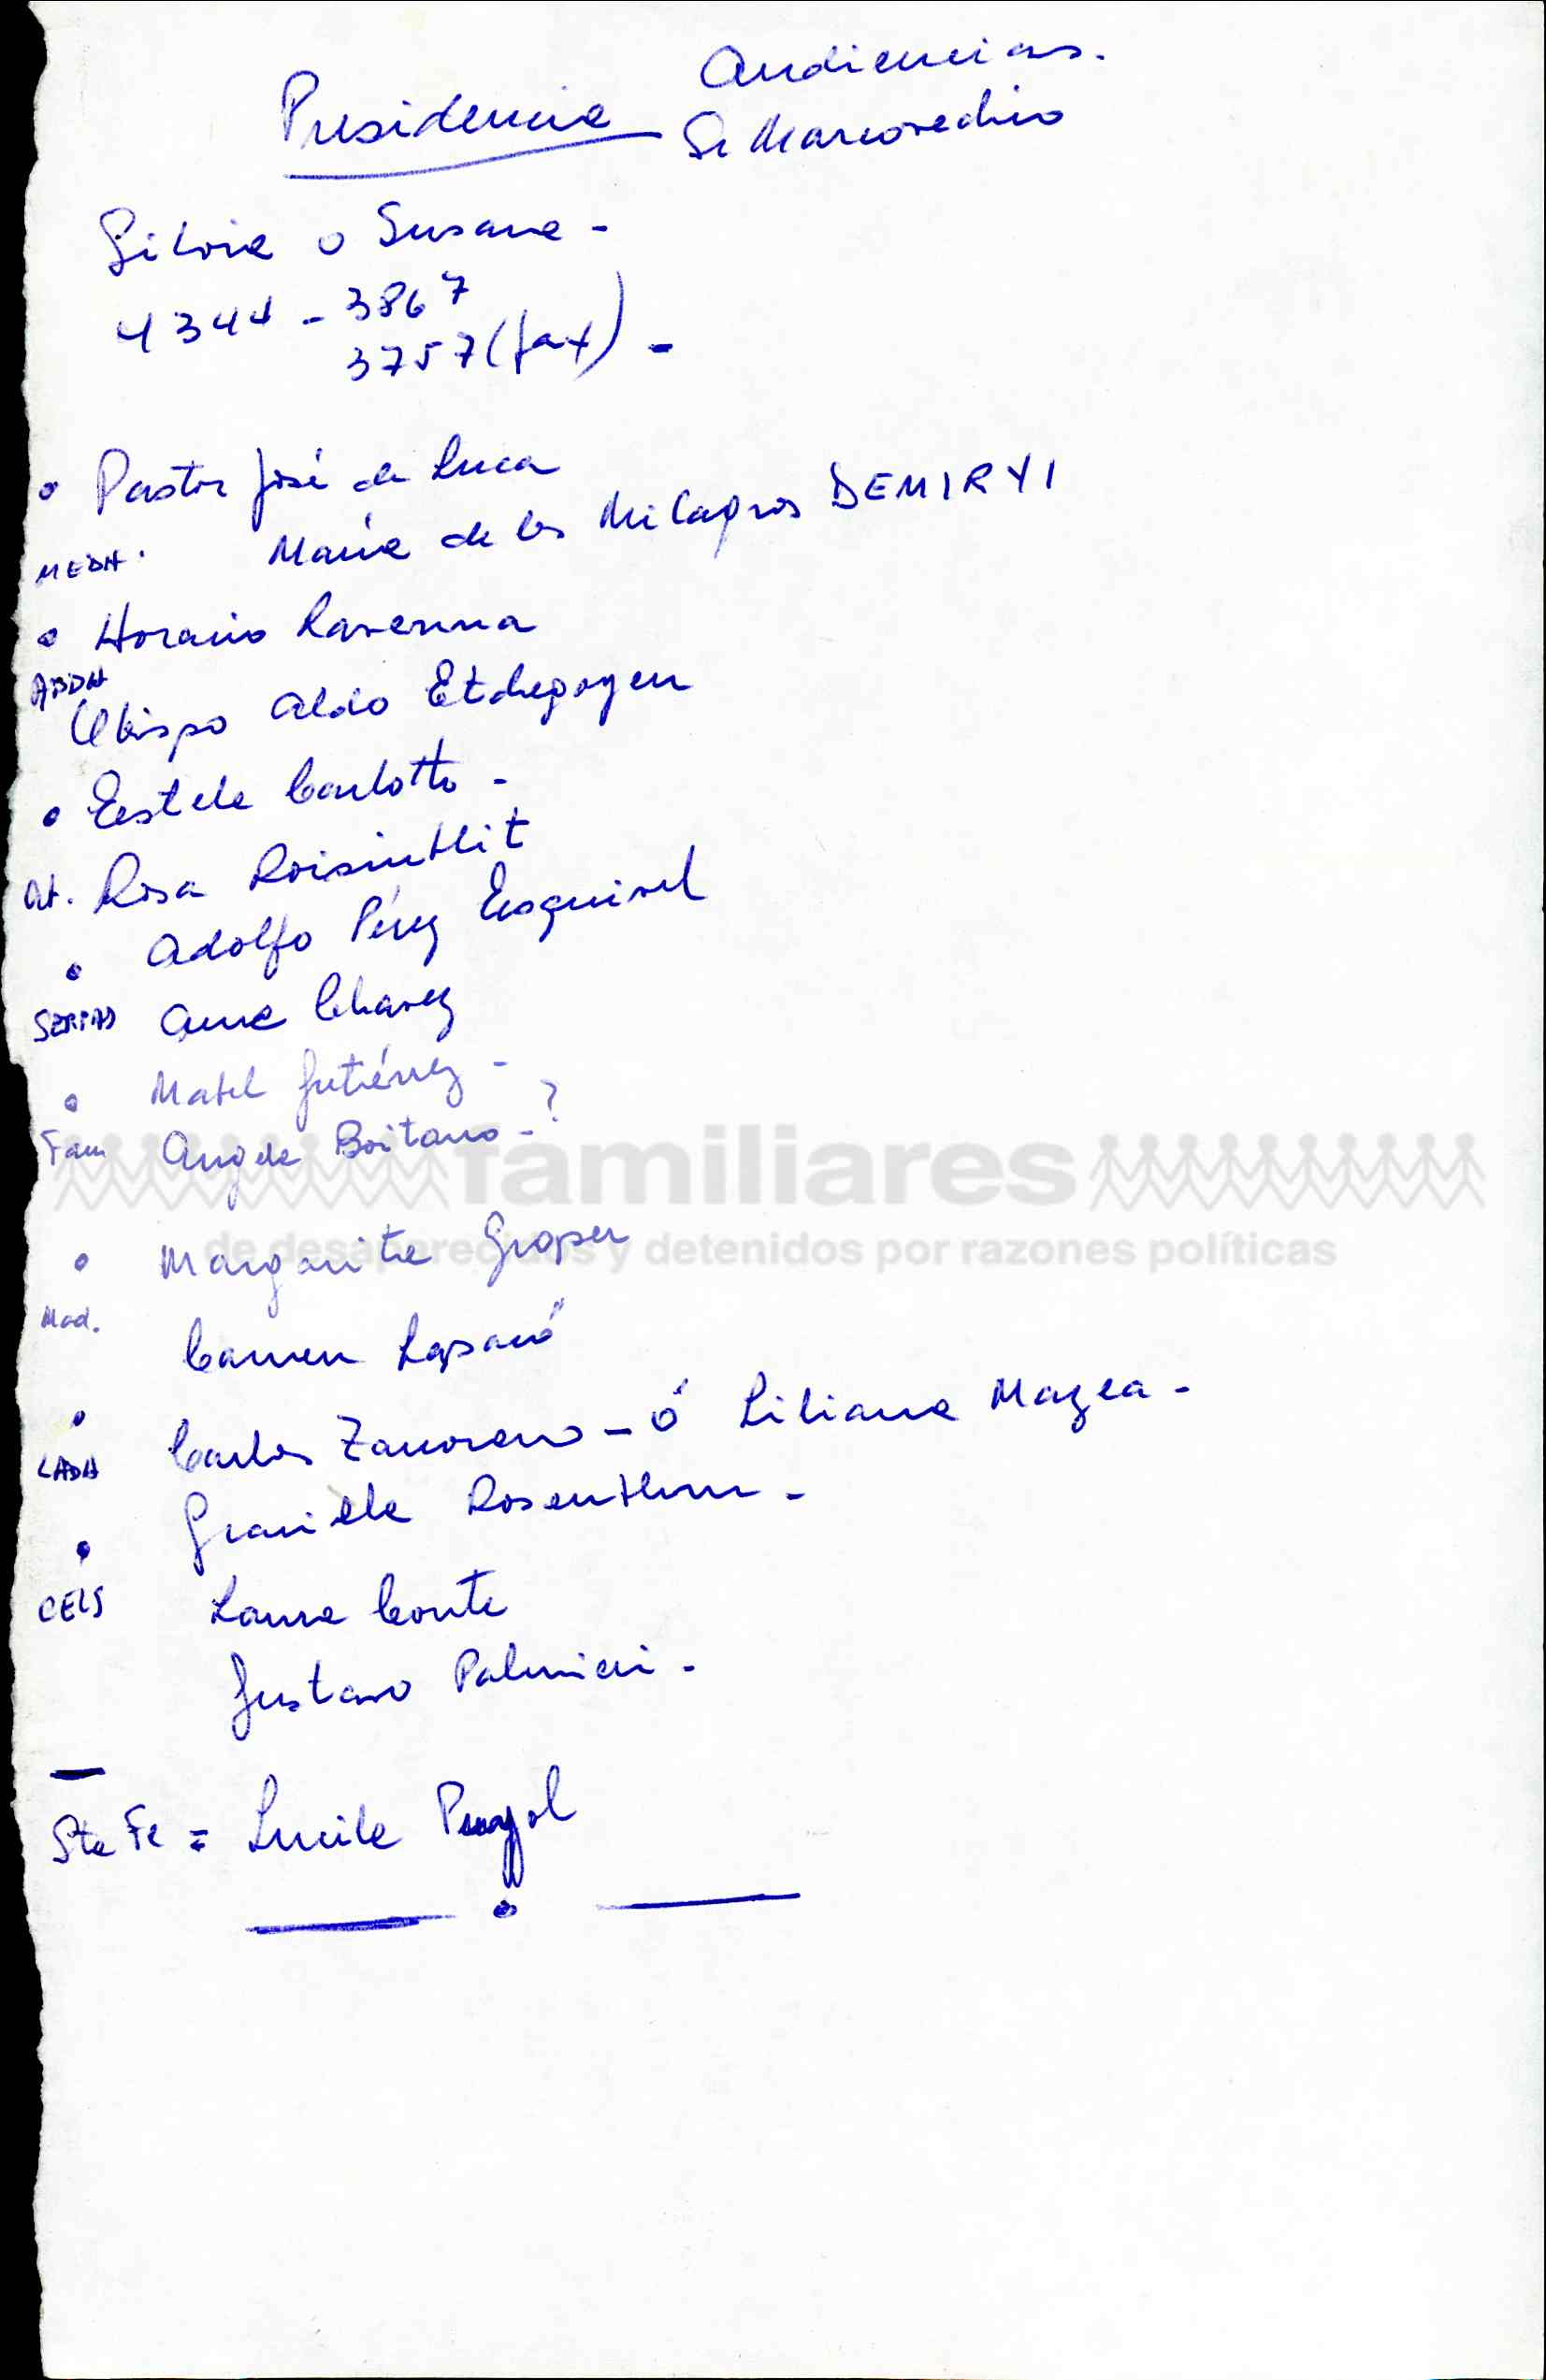 Audiencias.
Presidencia Sr Marcovechio
Silvia o Susana -
4344 - 3867
3757 (fax) -
• Pastor José de Luca
MEDH. María de los Milagros DEMIRYI
• Horacio Ravenna
APDH
Obispo Aldo Etchegoyen
• Estela Carlotto -
Ab. Rosa Roisinblit
• Adolfo Pérez Esquivel
SERPAJ Ana Chavez
• Mabel Gutiérrez -
Fam Angela Boitano - ?
familiares
de desaparecidos y detenidos por razones políticas
• Margarita Gropper
Mad.
Carmen Lapacó
•
LADH Carlos Zamorano - ó Liliana Mazea -
• Graciela Rosenblum -
CELS Laura Conte
Gustavo Palmieri -
Sta Fe = Lucila Pujol